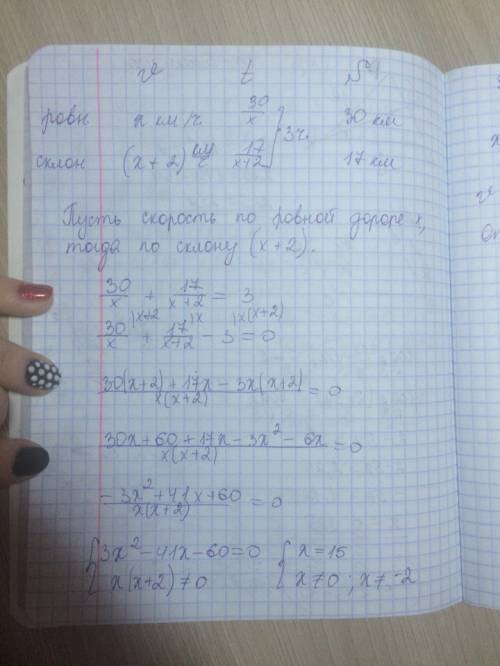 v t S
ровн x км/ч 30/x 30 км
склон (x+2) км/ч 17/(x+2) 3ч. 17 км
Пусть скорость по ровной дороге x,
тогда по склону (x+2).
30/x + 17/(x+2) = 3
30/x )x+2 + 17/(x+2) )x - 3 )x(x+2) = 0
(30(x+2)+17x-3x(x+2))/(x(x+2)) = 0
(30x+60+17x-3x²-6x)/(x(x+2)) = 0
(-3x²+41x+60)/(x(x+2)) = 0
{3x²-41x-60=0 {x=15
x(x+2)≠0 x≠0; x≠-2
Оп